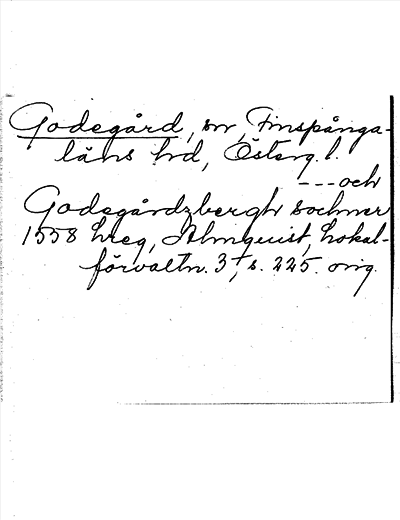 Godegård, sn, Finspånga-
läns hd, Österg. l.
--- och
Godegårdzbergh sochner
1558 hreg, Almquist, Lokal-
förvaltn. 3, s. 225. orig.